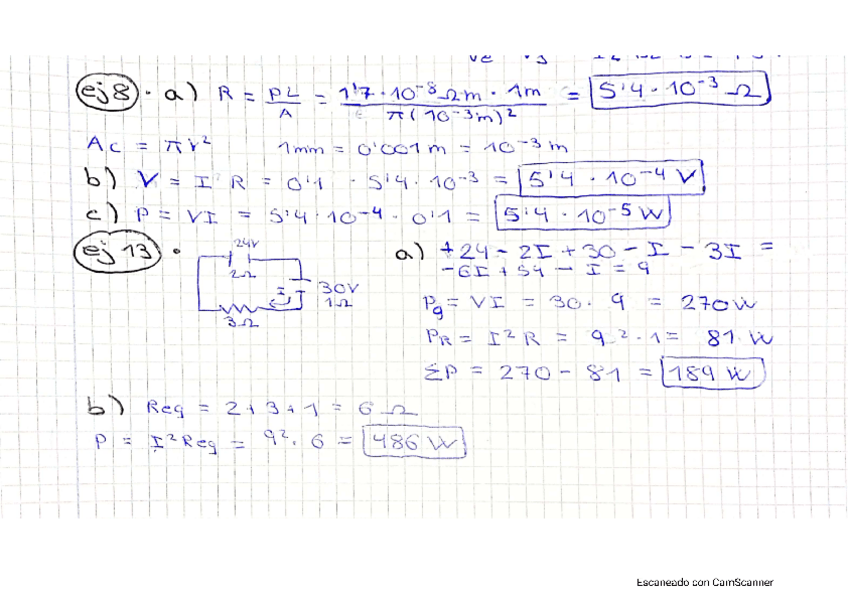 ej 8 . a) R = ρL/A = 1'7 · 10⁻⁸ Ωm · 1m / π(10⁻³m)² = 5'4 · 10⁻³ Ω
Ac = πr² 1mm = 0'001m = 10⁻³m
b) V = I · R = 0'1 · 5'4 · 10⁻³ = 5'4 · 10⁻⁴ V
c) P = VI = 5'4 · 10⁻⁴ · 0'1 = 5'4 · 10⁻⁵ W
ej 13 .
24V
2Ω
I
30V
1Ω
3Ω
a) +24 - 2I + 30 - I - 3I =
-6I + 54 - I = 9
Pg = VI = 30 · 9 = 270 W
PR = I²R = 9² · 1 = 81 W
ΣP = 270 - 81 = 189 W
b) Req = 2 + 3 + 1 = 6 Ω
P = I²Req = 9² · 6 = 486 W
Escaneado con CamScanner